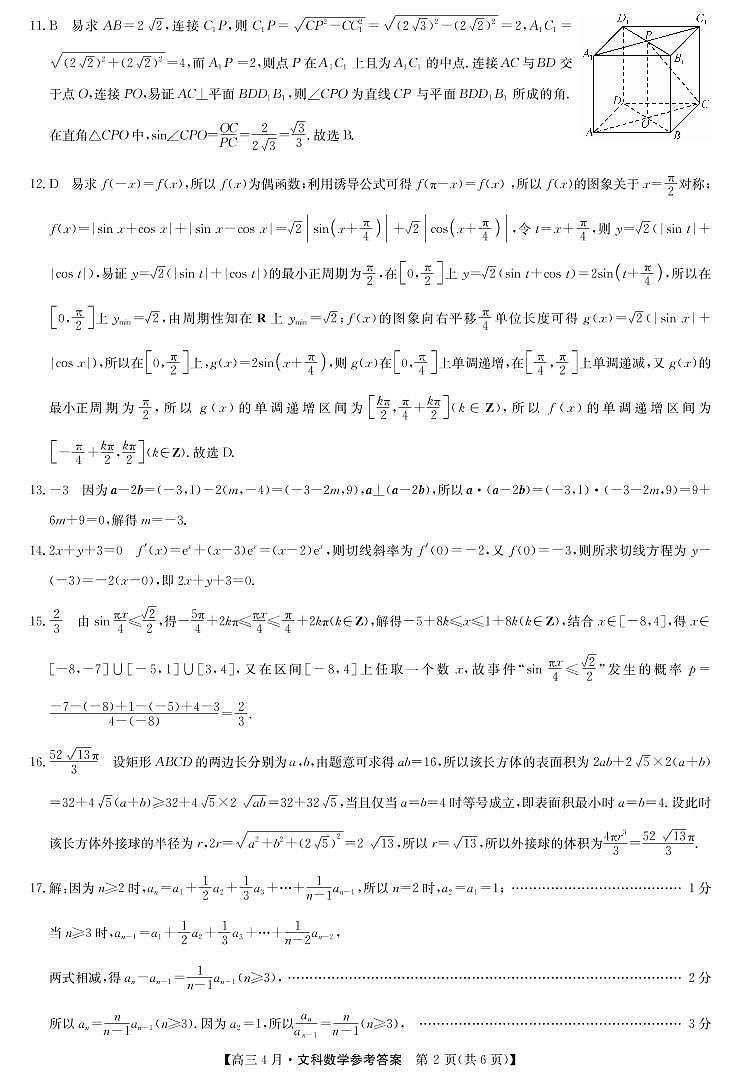 11. B 易求 AB=2√2,连接 C₁P,则 C₁P=√(CP²-CC₁²)=√((2√3)²-(2√2)²)=2,A₁C₁=
√((2√2)²+(2√2)²)=4,而 A₁P=2,则点 P 在 A₁C₁ 上且为 A₁C₁ 的中点.连接 AC 与 BD 交
于点 O,连接 PO,易证 AC⊥平面 BDD₁B₁,则∠CPO 为直线 CP 与平面 BDD₁B₁ 所成的角.
在直角△CPO 中,sin∠CPO=OC/PC=2/(2√3)=√3/3.故选 B.
D₁ C₁
P
A₁ B₁
D C
O
A B
12. D 易求 f(-x)=f(x),所以 f(x)为偶函数;利用诱导公式可得 f(π-x)=f(x),所以 f(x)的图象关于 x=π/2 对称;
f(x)=|sin x+cos x|+|sin x-cos x|=√2|sin(x+π/4)|+√2|cos(x+π/4)|,令 t=x+π/4,则 y=√2(|sin t|+
|cos t|),易证 y=√2(|sin t|+|cos t|)的最小正周期为π/2,在[0,π/2]上 y=√2(sin t+cos t)=2sin(t+π/4),所以在
[0,π/2]上 yₘᵢₙ=√2,由周期性知在 R 上 yₘᵢₙ=√2;f(x)的图象向右平移π/4单位长度可得 g(x)=√2(|sin x|+
|cos x|),所以在[0,π/2]上,g(x)=2sin(x+π/4),则 g(x)在[0,π/4]上单调递增,在[π/4,π/2]上单调递减,又 g(x)的
最小正周期为π/2,所以 g(x)的单调递增区间为[kπ/2,π/4+kπ/2](k∈Z),所以 f(x)的单调递增区间为
[-π/4+kπ/2,kπ/2](k∈Z).故选 D.
13. -3 因为 a-2b=(-3,1)-2(m,-4)=(-3-2m,9),a⊥(a-2b),所以 a·(a-2b)=(-3,1)·(-3-2m,9)=9+
6m+9=0,解得 m=-3.
14. 2x+y+3=0 f′(x)=eˣ+(x-3)eˣ=(x-2)eˣ,则切线斜率为 f′(0)=-2,又 f(0)=-3,则所求切线方程为 y-
(-3)=-2(x-0),即 2x+y+3=0.
15. 2/3 由 sin πx/4≤√2/2,得-5π/4+2kπ≤πx/4≤π/4+2kπ(k∈Z),解得-5+8k≤x≤1+8k(k∈Z),结合 x∈[-8,4],得 x∈
[-8,-7]∪[-5,1]∪[3,4],又在区间[-8,4]上任取一个数 x,故事件“sin πx/4≤√2/2”发生的概率 p=
(-7-(-8)+1-(-5)+4-3)/(4-(-8))=2/3.
16. 52√13π/3 设矩形 ABCD 的两边长分别为 a,b,由题意可求得 ab=16,所以该长方体的表面积为 2ab+2√5×2(a+b)
=32+4√5(a+b)≥32+4√5×2√ab=32+32√5,当且仅当 a=b=4 时等号成立,即表面积最小时 a=b=4.设此时
该长方体外接球的半径为 r,2r=√(a²+b²+(2√5)²)=2√13,所以 r=√13,所以外接球的体积为4πr³/3=52√13π/3.
17.解:因为 n≥2 时,aₙ=a₁+1/2 a₂+1/3 a₃+⋯+1/(n-1) aₙ₋₁,所以 n=2 时,a₂=a₁=1; ………………………………… 1 分
当 n≥3 时,aₙ₋₁=a₁+1/2 a₂+1/3 a₃+⋯+1/(n-2) aₙ₋₂,
两式相减,得 aₙ-aₙ₋₁=1/(n-1) aₙ₋₁(n≥3), ………………………………………………………………………… 2 分
所以 aₙ=n/(n-1) aₙ₋₁(n≥3).因为 a₂=1,所以 aₙ/aₙ₋₁=n/(n-1)(n≥3), …………………………………………………… 3 分
【高三 4 月·文科数学参考答案 第 2 页(共 6 页)】